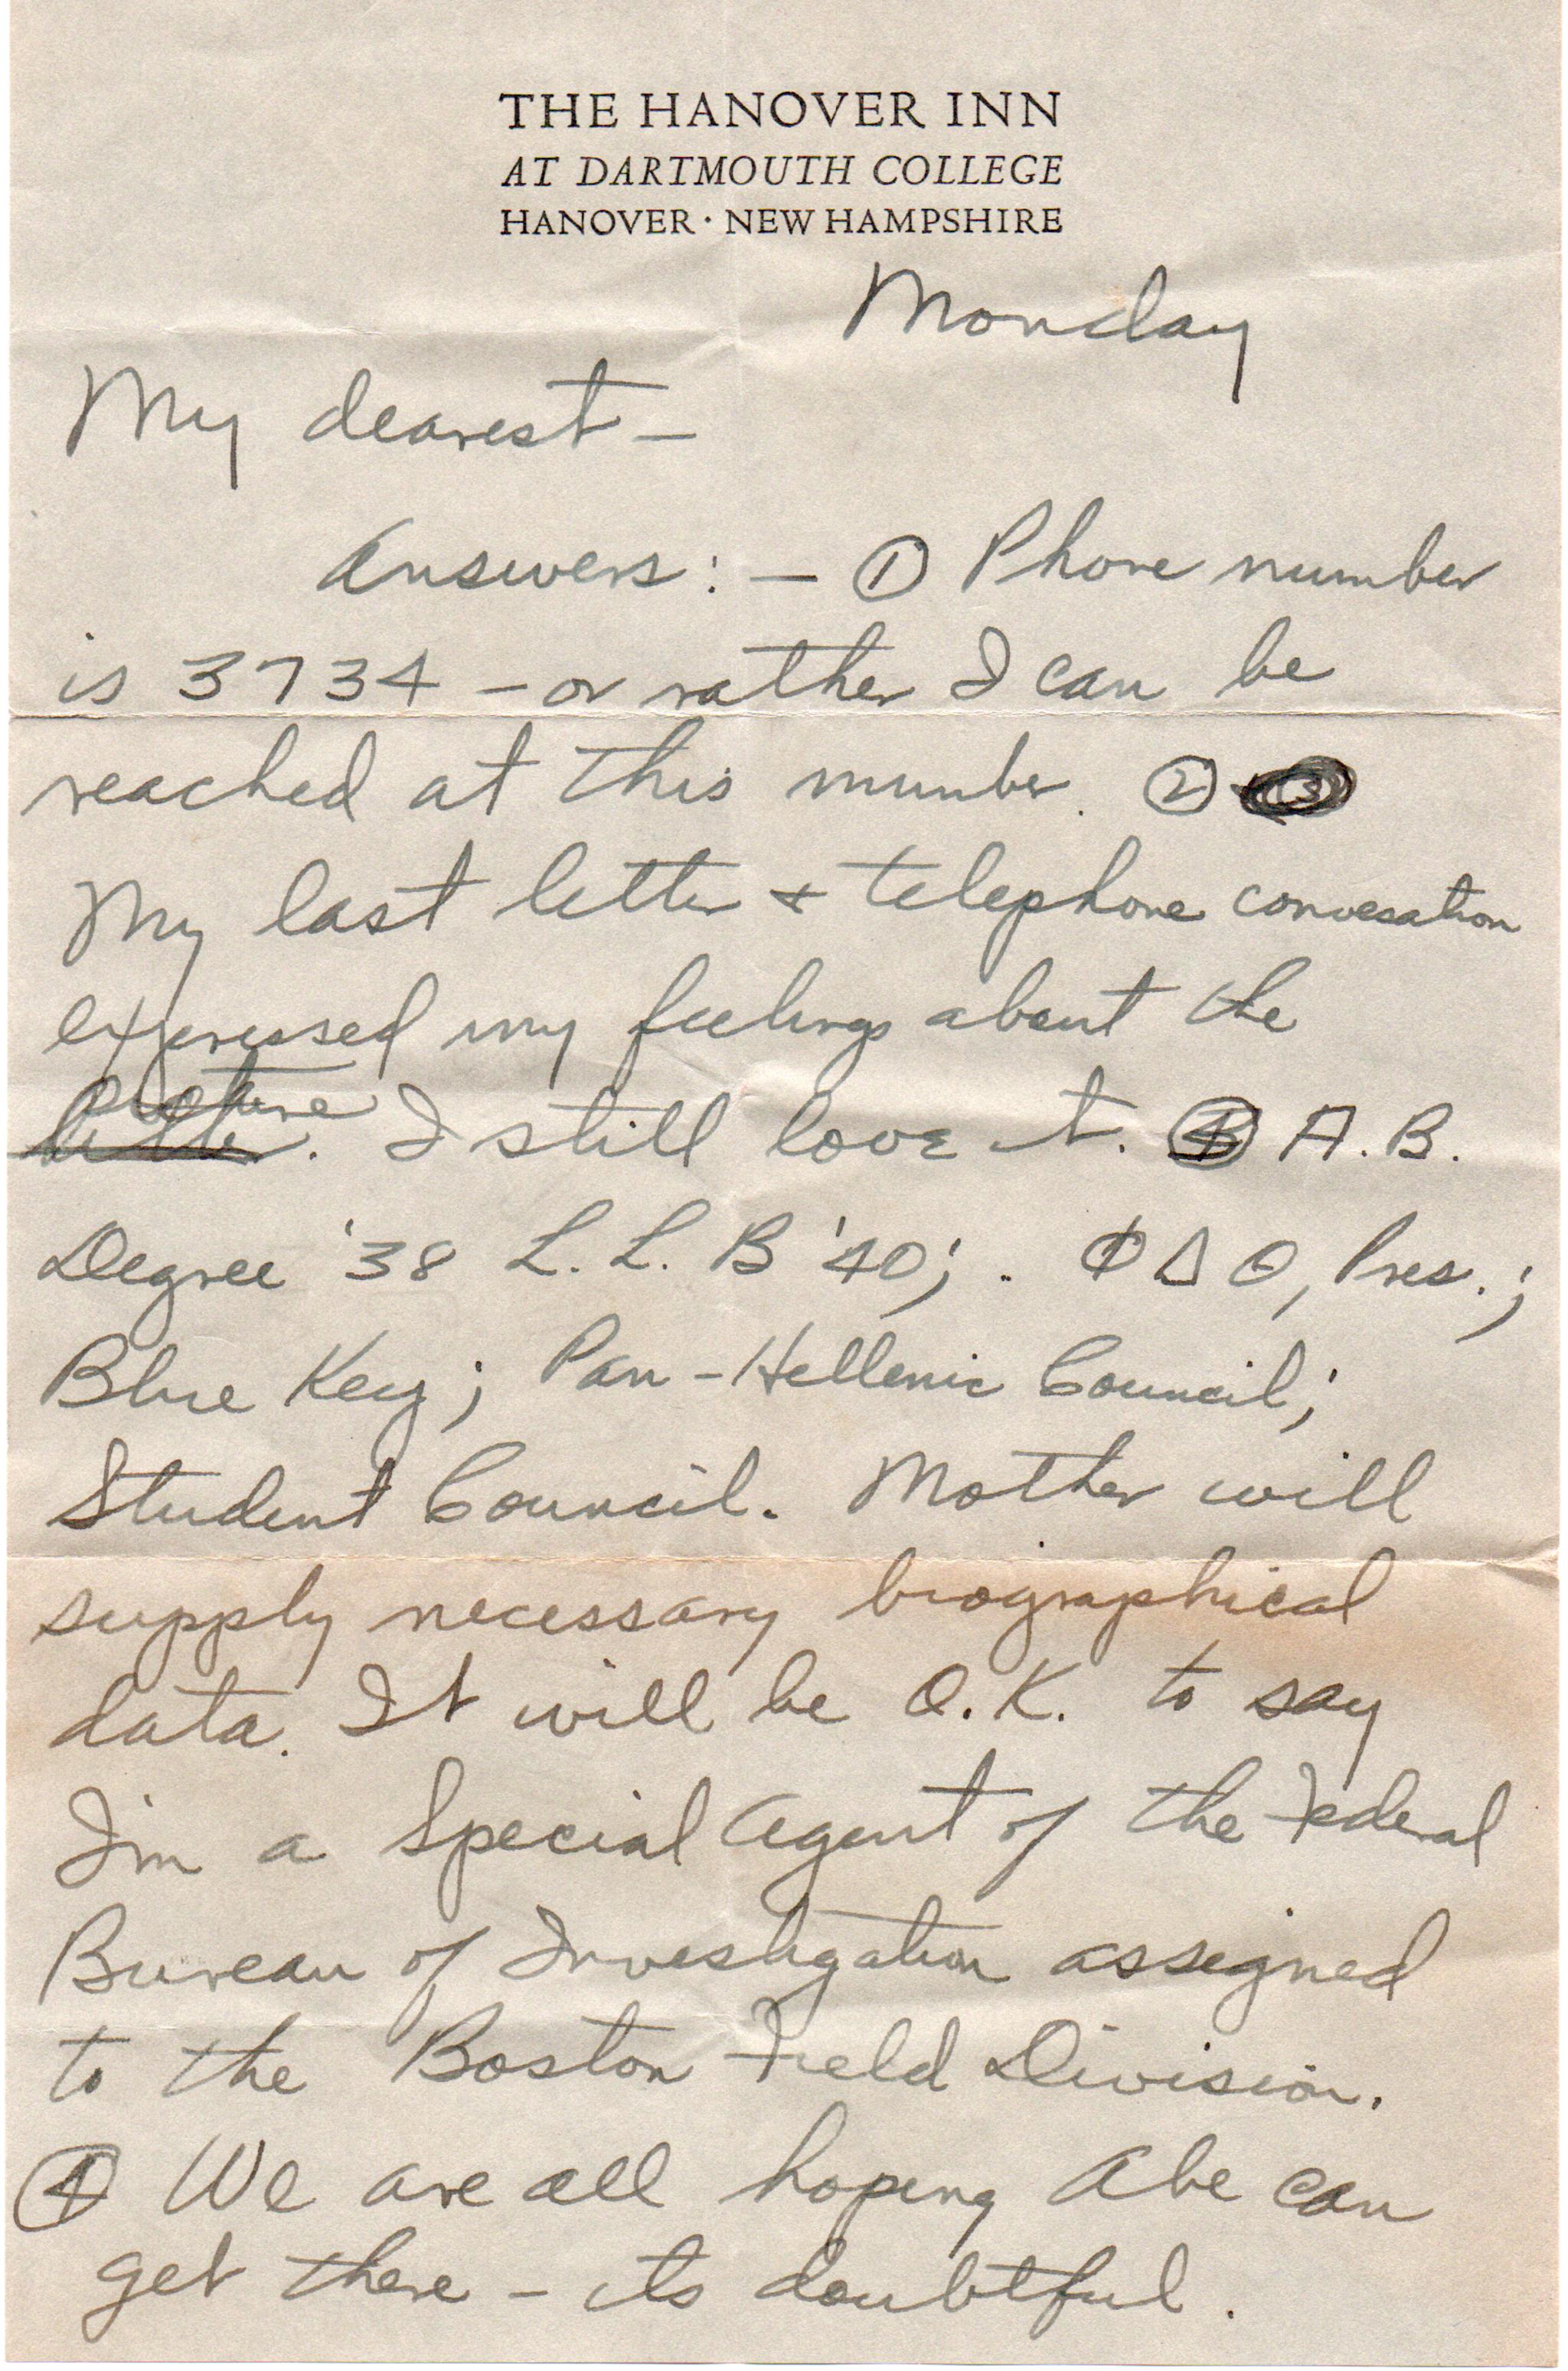 THE HANOVER INN
AT DARTMOUTH COLLEGE
HANOVER · NEW HAMPSHIRE
Monday
My dearest —
Answers: — ① Phone number
is 3734 — or rather I can be
reached at this number. ② ③
My last letter & telephone convesation
expressed my feelings about the
picture
letter. I still love it. ③ A. B.
Degree '38 L. L. B '40; . Φ Δ Θ, Pres.;
Blue Key; Pan-Hellenic Council;
Student Council. Mother will
supply necessary biographical
data. It will be O.K. to say
I'm a Special Agent of the Federal
Bureau of Investigation assigned
to the Boston Field Division.
④ We are all hoping Abe can
get there — its doubtful.